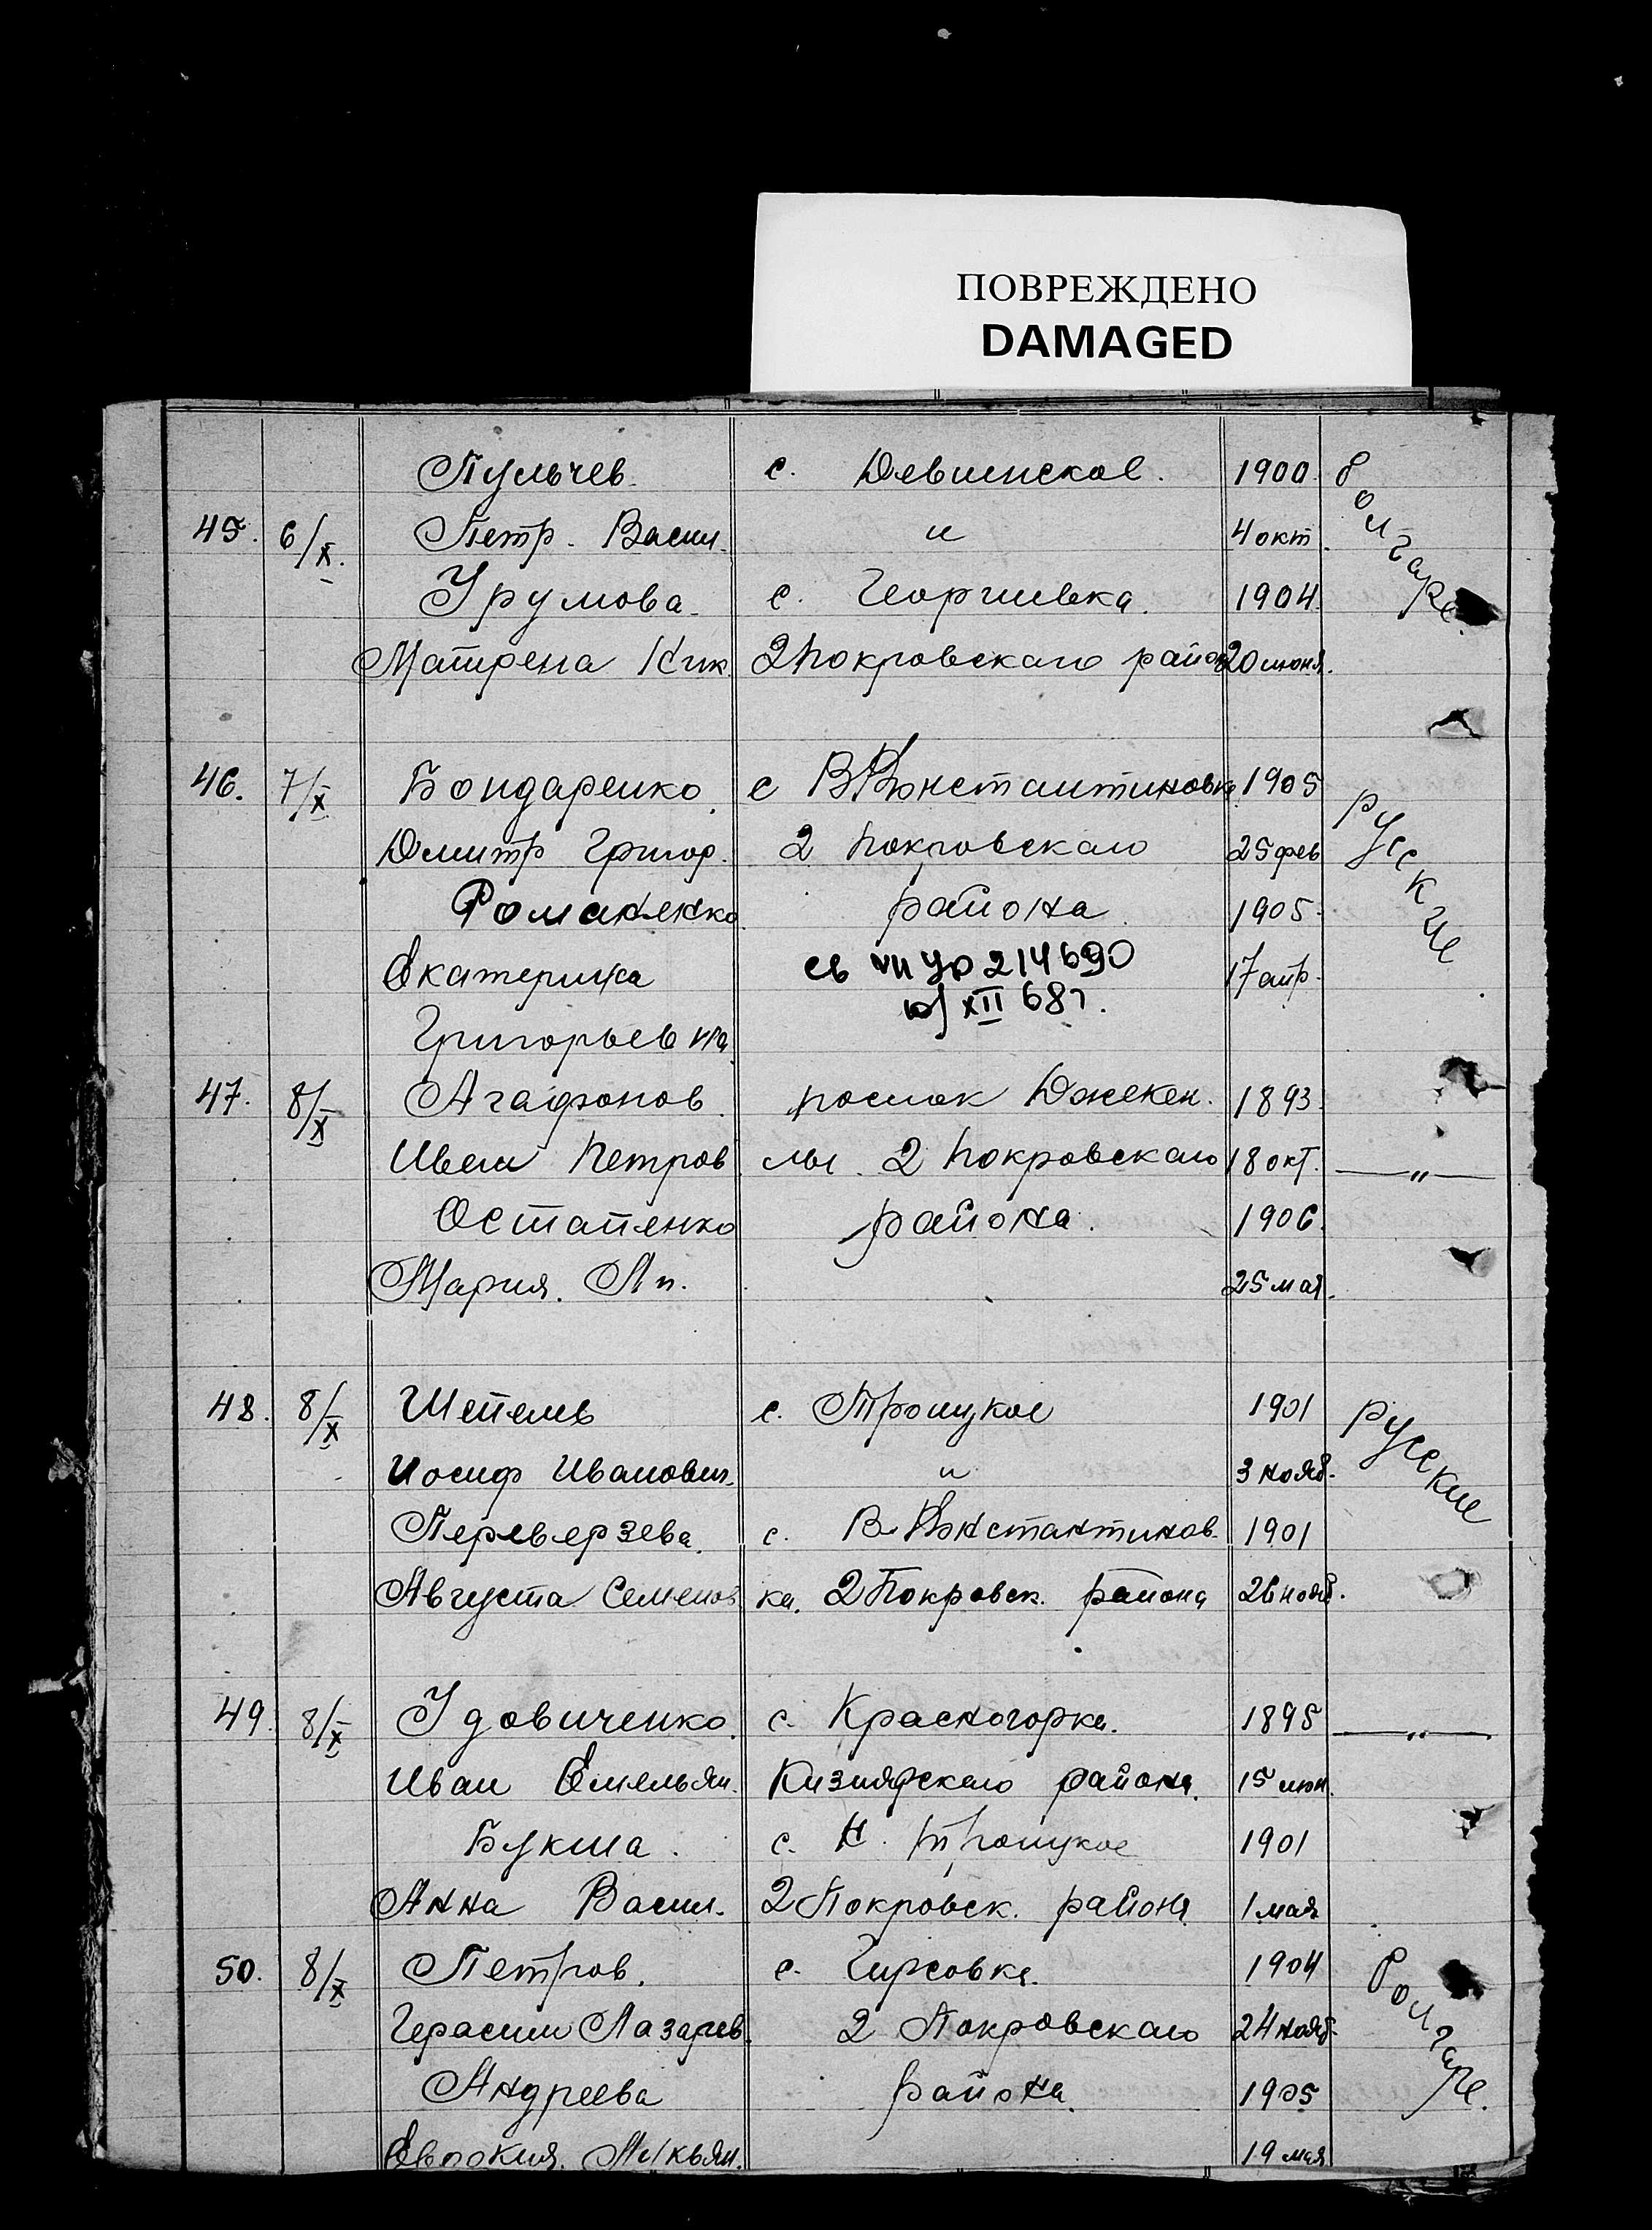 ПОВРЕЖДЕНО
DAMAGED
Пульчев. с. Девинское. 1900. болгаре
45. 6/X. Петр. Васил. и 4 окт.
Урумова. с. Георгиевка. 1904.
Матрена Ник. 2 Покровскаго район 20 июня.
46. 7/X Бондаренко. с В Константиновка 1905 русские
Дмитр Григор. 2 Покровскаго 25 фев
Романенко района 1905.
Екатерина св 214690 17 апр.
Григорьевна XII 68г.
47. 8/X Агафонов. послок Джекен. 1893.
Иван Петров лы. 2 Покровскаго 18 окт. —"—
Остапенко района. 1906.
Мария. Ап. 25 мая.
48. 8/X Шепель с. Троицкое 1901 русские
Иосиф Иванович. и 3 нояб.
Переверзева. с. В. Константинов. 1901
Августа Семенов ка. 2 Покровск. района 26 нояб.
49. 8/X Удовиченко. с. Красногорка. 1895 —"—
Иван Емельян. Кизиярскаго района. 15 июн.
Букша. с. Н. Троицкое 1901
Анна Васил. 2 Покровск. района 1 мая
50. 8/X Петров. с. Гирсовка. 1904 болгаре.
Герасим Лазарев. 2 Покровскаго 24 нояб.
Андреева района. 1905
Евдокия. Лукьян. 19 мая